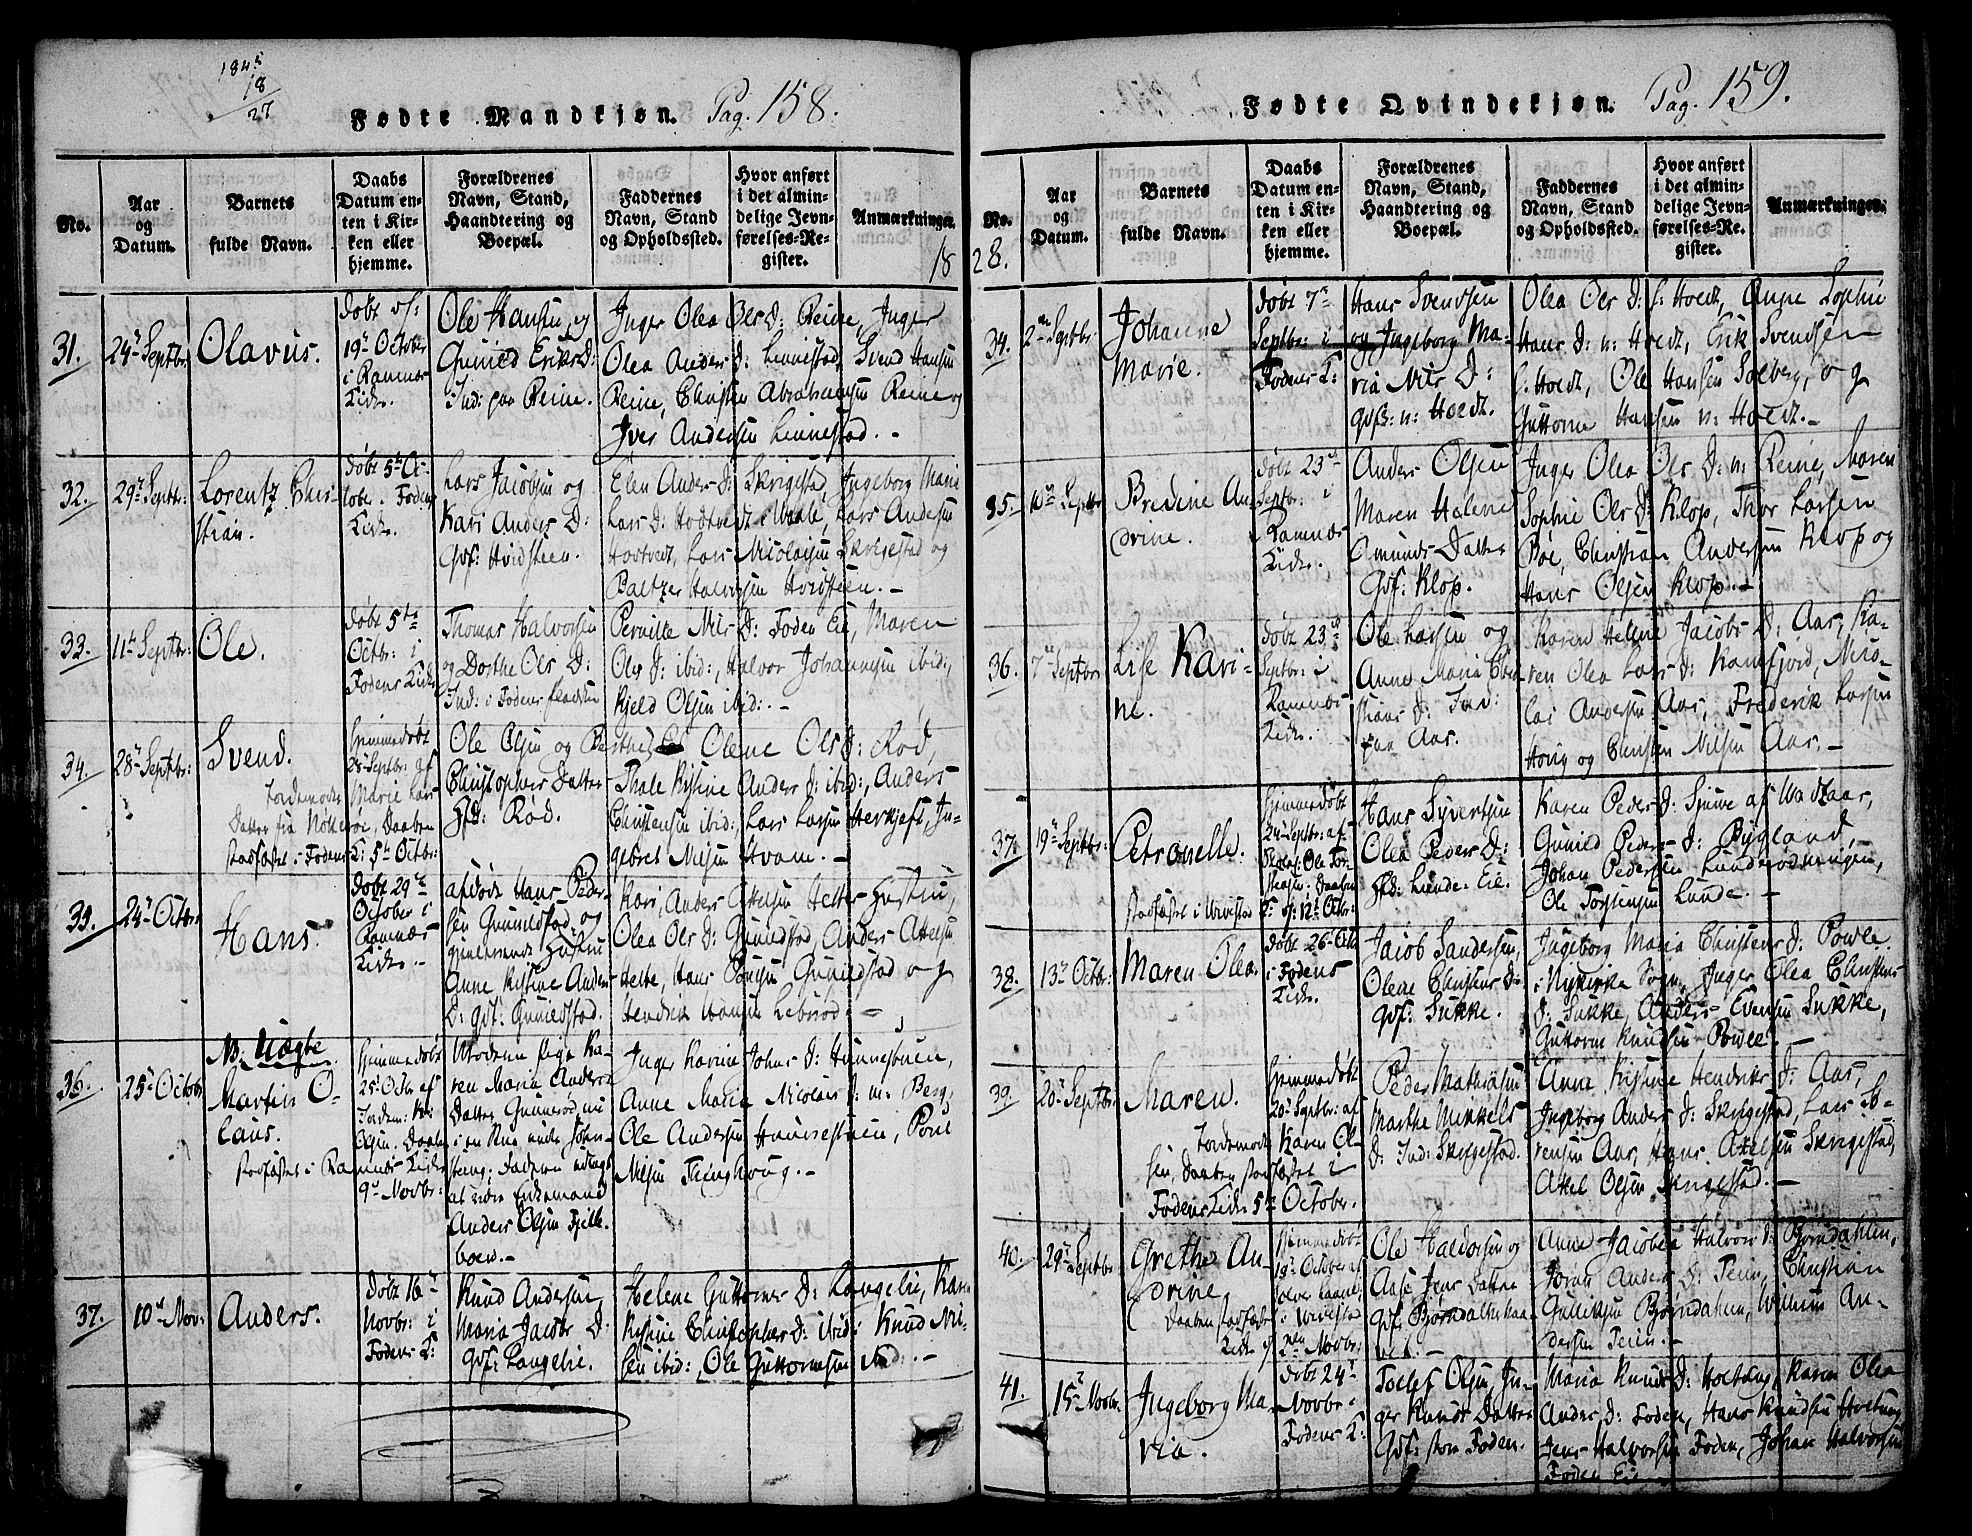 1845
18
27
Fødte Mandkjøn. Pag. 158.
No.
Aar
og
Datum.
Barnets
fulde Navn.
Daabs
Datum en-
ten i Kir-
ken eller
hjemme.
Forældrenes
Navn, Stand,
Haandtering og
Boepæl.
Faddernes
Navn, Stand
og Opholdssted.
Hvor anført
i det almin-
delige Jevn-
førelses-Re-
gister.
Anmærkninger.
18
31.
24de Septbr:
Olavus.
døbt
19de October
i Ramnæs
Kirke.
Ole Hansen og
Gunild Eriks D:
Ind: paa Reine.
Inger Olea Ols D: Reine, Inger
Olea Anders D: Linnestad, Svend Hansen
Reine, Christen Abrahamsen Reine og
Iver Andersen Linnestad. -
32.
29de Septbr:
Lorentz Chri-
stian.
døbt 5te Oc-
tobr i Fodens
Kirke.
Lars Jacobsen og
Kari Anders D:
Gdf: Hvidsteen.
Elen Anders D: Skrigestad, Ingeborg Marie
Lars D: Hodtvedt i Waale, Lars Andersen
Hovtvedt, Lars Nicolaisen Skrigestad og
Baltzer Halvorsen Hvidsteen. -
33.
11te Septbr:
Ole.
døbt 5te
Octbr: i
Fodens Kirke
Thomas Halvorsen
og Dorthe Ols D:
Ind: i Fodens
Pernille Nils D: Foden Eie, Maren
Ols D: ibid:, Halvor Johannesen ibid:,
Kjeld Olsen ibid:. -
34.
28de Septbr:
Svend.
Jordemoder
Datter fra Nøtterøe, Daaben
stadfæstet i Fodens K: 5te Octbr:
hjemmedøbt
28de Septbr: af
Marie Lars
Ole Olsen og Berthe
Christophers Datter
Rød.
Olene Ols D: Rød,
Thale Kistine Anders D: ibid:, Anders
Christensen ibid:, Lars Larsen Herkjeft, In-
gebret Nilsen Hvam. -
35.
24de Octbr:
Hans.
døbt 29de
October i
Ramnæs
Kirke. -
afdøde Hans Peder-
sen Gunildstad, og
gjenlevende Hustru
Anne Kistine Anders
D: Gdf: Gunildstad.
Kari, Anders Attelsen Helte, Hustru,
Olea Ols D: Gunildstad, Anders Attelsen
Helte, Hans Gunildstad og
Hendrik Hansen -
36.
25de Octobr:
NB. Uægte
Martin O-
laus.
stadfæstet i Ramnæs Kirke
9de Novbr:
hjemmedøbt
25de Octbr af
Jordem:
Olsen. Daaben
Moderen Pige Ka-
ren Maria Anders
Datter Gunnerød,
Faderen udlagt
at være Enkemand
Anders Olsen Fjelle-
boen. -
Inger Karine Johns D: Hunnestuen,
Anne Maria Nicolais D: m: Berg,
Ole Andersen Hunnestuen, Poul
Nilsen Tinghoug. -
37.
10de Nov:
Anders.
Døbt 16de
Novbr: i
Fodens K:
Knud Andersen
Maria Jacobs D:
Gdf: Langelie.
Helene Guttorms D: Langelie, Karen
Kistine Christophers D: ibid: Knud Nil-
sen ibid:, Ole Guttormsen ibid:. -
Fødte Qvindekjøn. Pag. 159.
No.
28.
Aar
og
Datum.
Barnets
fulde Navn.
Daabs
Datum en-
ten i Kir-
ken eller
hjemme.
Forældrenes
Navn, Stand,
Haandtering og
Boepæl.
Faddernes
Navn, Stand
og Opholdssted.
Hvor anført
i det almin-
delige Jevn-
førelses-Re-
gister.
Anmærkninger.
34.
2den Septbr:
Johanne
Marie.
døbt 7de
Septbr: i
Fodens K:
Hans Svendsen
og Ingeborg Ma-
ria Nils D:
Gdf: n: Hoedt.
Olea Ols D: S: Hoedt, Anne Sophie
Hans D: n: Hoedt, Erik Svendsen
S: Hoedt, Ole Hansen Solberg, og
Guttorm Hansen n: Hoedt. -
35.
10de Septbr
Bredine An-
drine.
døbt 23de
Septbr: i
Ramnæs
Kirke.
Anders Olsen
Maren Helene
Amunds Datter
Gdf: Klop.
Inger Olea Ols D: n: Reine, Maren
Sophie Ols D: Klop, Thor Larsen
Bøe, Christian Andersen Klop og
Hans Olsen Klop. -
36.
7de Septbr:
Lise Kari-
ne.
døbt 23de
Septbr: i
Ramnæs
Kirke.
Ole Larsen og
Anne Maria Chri-
stians D: Ind:
paa Aar.
Karen Helene Jacobs D: Aar, Ka-
ren Olea Lars D: Ramsfjord, Nico-
lai Andersen Aar, Frederik Larsen
Houg og Christen Nilsen Aar. -
37.
19de Septbr:
Petronelle.
stadfæstet i Vivestad
K: d: 12te Octbr:
hjemmedøbt
24de Septbr: af
Skolel: Ole Tor-
stensen. Daaben
Hans Syvertsen
Olea Peders D:
Lunde Eie.
Karen Peders D: Sjuve af Hvadtaar,
Gunild Peders D: Bygland,
Johan Pedersen Lunderødningen,
Ole Torstensen Lunde. -
38.
13de Octbr:
Maren Olea.
døbt 26de Oct
i Fodens
Kirke.
Jacob Sandersen,
Olene Christens D:
Gdf: Sukke.
Ingeborg Maria Christens D: Powle
i Nykirke Sogn, Inger Olea Christens
D: Sukke, Anders Evensen Sukke,
Guttorm Knudsen Powle. -
39.
20de Septbr:
Maren.
Jordemoder Karen Ol-
sen, Daaben stadfæstet i
Fodens Kirke 5te October.
hjemmedøbt
20de Septbr: af
Peder Mathisen
Marthe Mikkels
D: Ind: Skrigestad.
Anne Kistine Hendriks D: Aar,
Ingeborg Anders D: Skrigestad, Lars So-
rensen Aar, Hans Axelsen Skrigestad,
Axel Olsen Skrigestad. -
40.
29de Septbr
Grethe An-
drine.
Daaben stadfæstet
hjemmedøbt
19de October af
i Vivestad
Kirke 2den Novbr:
Ole Halvorsen og
Aase Jens Datter
Gdf: Bjørndal
Anne Jacobea Halvors D: Bjørndahlen,
Joran Anders D: Teien, Christian
Gulliksen Bjørndahlen, Wilhelm An-
dersen Teien. -
41.
15de Novbr:
Ingeborg Ma-
ria.
døbt 24de
Novbr: i
Fodens K:
Tollef Olsen, In-
ger Knuds Datter
Gdf: store Foden.
Maria Knuds D: Holtung, Karen Olea
Anders D: Foden, Hans Knudsen Holtung,
Jens Halvorsen Foden, Johan Halvorsen
Foden Eie